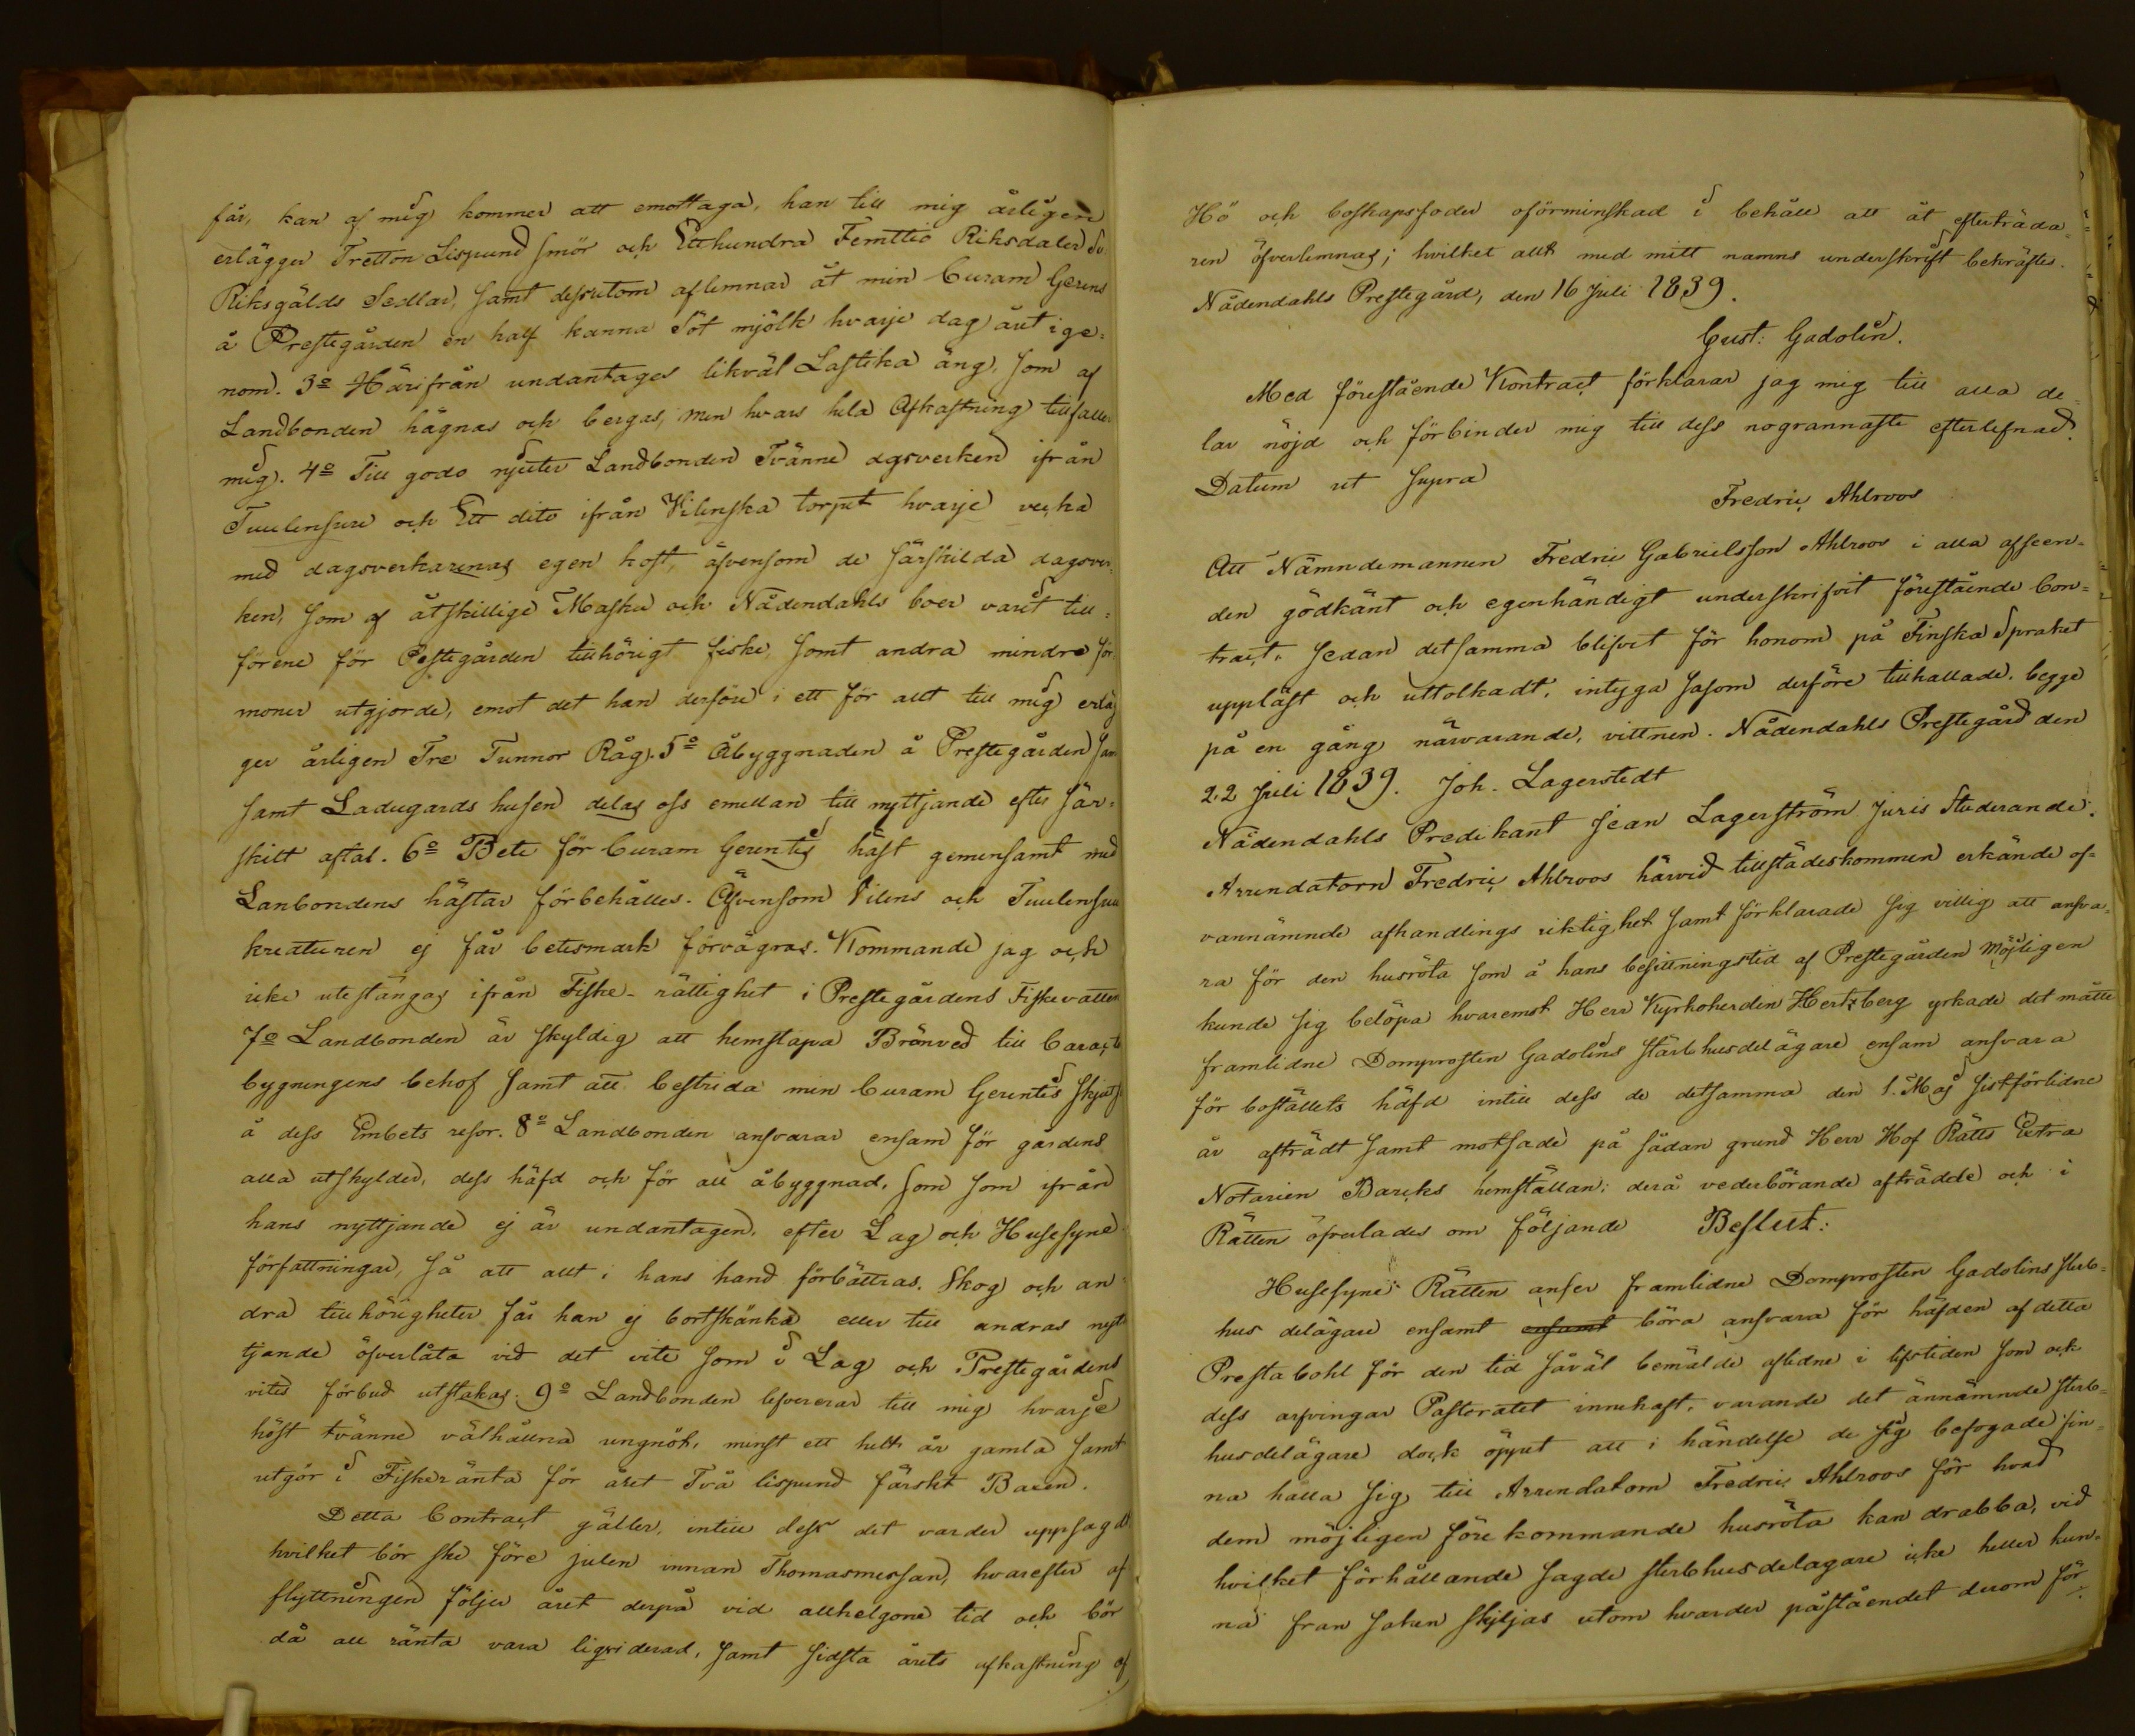 får, kan af mig kommer att emottaga, han till mig årligen
erlägger Tretton Lispund smör och Etthundra Femttio Riksdaler Sv.
Riksgälds Sedlar, samt dessutom aflemnar åt min Curam Gerens
å Prestegården en half kanna Söt mjölk hvarje dag året ige-
nom. 3o Härifrån undantages likväl Lastika äng, som af
Landbonden hägnas och bergas, men hvars hela Afkastning tillfaller
mig. 4o Till godo njuter Landbonden Tvänne dgsverken ifrån
Tuulensuu och Ett dito ifrån Vilenska torpet hvarje vecka
med dagsverkarenas egen kost, äfvensom de särskilda dagsver-
ken, som af åtskillige Masku och Nådendahls boer varit till-
förene för Pestegården tillhörigt fiske, samt andra mindre för-
moner utgjorde, emot det han derföre i ett för allt till mig erläg-
ger årligen Tre Tunnor Råg. 5o Åbyggnaden å Prestegården sam
samt Ladugards husen delas oss emellan till nyttjande efter Sär-
skilt aftal. 6o Bete för Curam Gerentis häst gemensamt med
Lanbondens hästar förbehålles. Äfvensom Vilens och Tuulensuu
kreaturen ej får betesmark förvägras. Kommande jag och
icke utestängas ifrån Fiske-rättighet i Prestegårdens Fiskevatten
7o Landbonden är skyldig att hemskapa Bränved till Caracts
bygningens behof samt att bestrida min Curam Gerentis skjuts
å dess Embets resor. 8o Landbonden ansvarar ensam för gårdens
alla utskylder, dess häfd och för all åbyggnad, som som ifrån
hans nyttjande ej är undantagen, efter Lag och Husesyns
författningar, så att allt i hans hand förbättras. Skog och an-
dra tillhörigheter får han ej bortskänka eller till andras nyt-
tjande öfverlåta vid det vite som i Lag och Prestegårdens
vites förbud utstakas. 9o Landbonden lefvererar till mig hvarje
höst tvänne välhållna ungnöt, minst ett helt år gamla samt
utgör i Fiskeränta för året Två lispund färskt Baren.
Detta Contract gäller, intill dess det varder uppsagdt
hvilket bör ske före julen innan Thomasmessan, hvarefter af
flyttningen följer året derpå vid allhelgone tid och bör
då all ränta vara liqviderad, samt sidsta årets afkastning af
Hö och boskapsfoder oförminskad i behåll att åt efterträda-
ren öfverlemnas; hvilket allt med mitt namns underskrift bekräftes.
Nådendahls Prestegård, den 16 Juli 1839.
Gust: Gadolin.
Med förestående Kontract förklarar jag mig till alla de-
lar nöjd och förbinder mig till dess nogrannaste efterlefnad.
Datum ut supra
Fredric Ahlroos
Att Nämndemannen Fredric Gabrielsson Ahlroos i alla afseen-
den gödkänt och egenhändigt underskrifvit förestående Con-
tract, sedan detsamma blifvit för honom på Finska Språket
uppläst och uttolkadt, intyga såsom derföre tillkallade, begge
på en gång närvarande, vittnen. Nådendahls Prestegård den
22 Juli 1839. Joh. Lagerstedt
Nådendahls Predikant Jean Lagerström Juris Studerande.
Arrendatorn Fredric Ahlroos härvid tillstädeskommen erkände of-
vannämnde afhandlings riktighet samt förklarade sig villig att ansva-
ra för den husröta som å hans besittningstid af Prestegården möjligen
kunde sig belöpa hvaremot Herr Kyrkoherden Hertzberg yrkade det måtte
framlidne Domprosten Gadolins stärbhusdelägare ensam ansvara
för boställets häfd intill dess de detsamma den 1. Maj sistförlidne
år afträdt samt motsade på sådan grund Herr Hof Rätts Extra
Notarien Barcks hemställan; derå vederbörande afträdde och i
Rätten öfverlades om följande Beslut:
Husesyns Rätten anser framlidne Domprosten Gadolins sterb-
hus delägare ensamt ensamt böra ansvara för häfden af detta
Prestabohl för den tid såväl bemälde aflidne i lifstiden som ock
dess arfvingar Pastoratet innehaft, varande det ännämnde sterb-
husdelägare dock öppet att i händelse de sig befogade fin-
na hålla sig till Arrendatorn Fredric Ahlroos för hvad
dem möjligen förekommande husröta kan drabba, vid
hvilket förhållande sagde sterbhusdelagare icke heller kun-
na från saken skiljas utom hvarder påståendet derom för